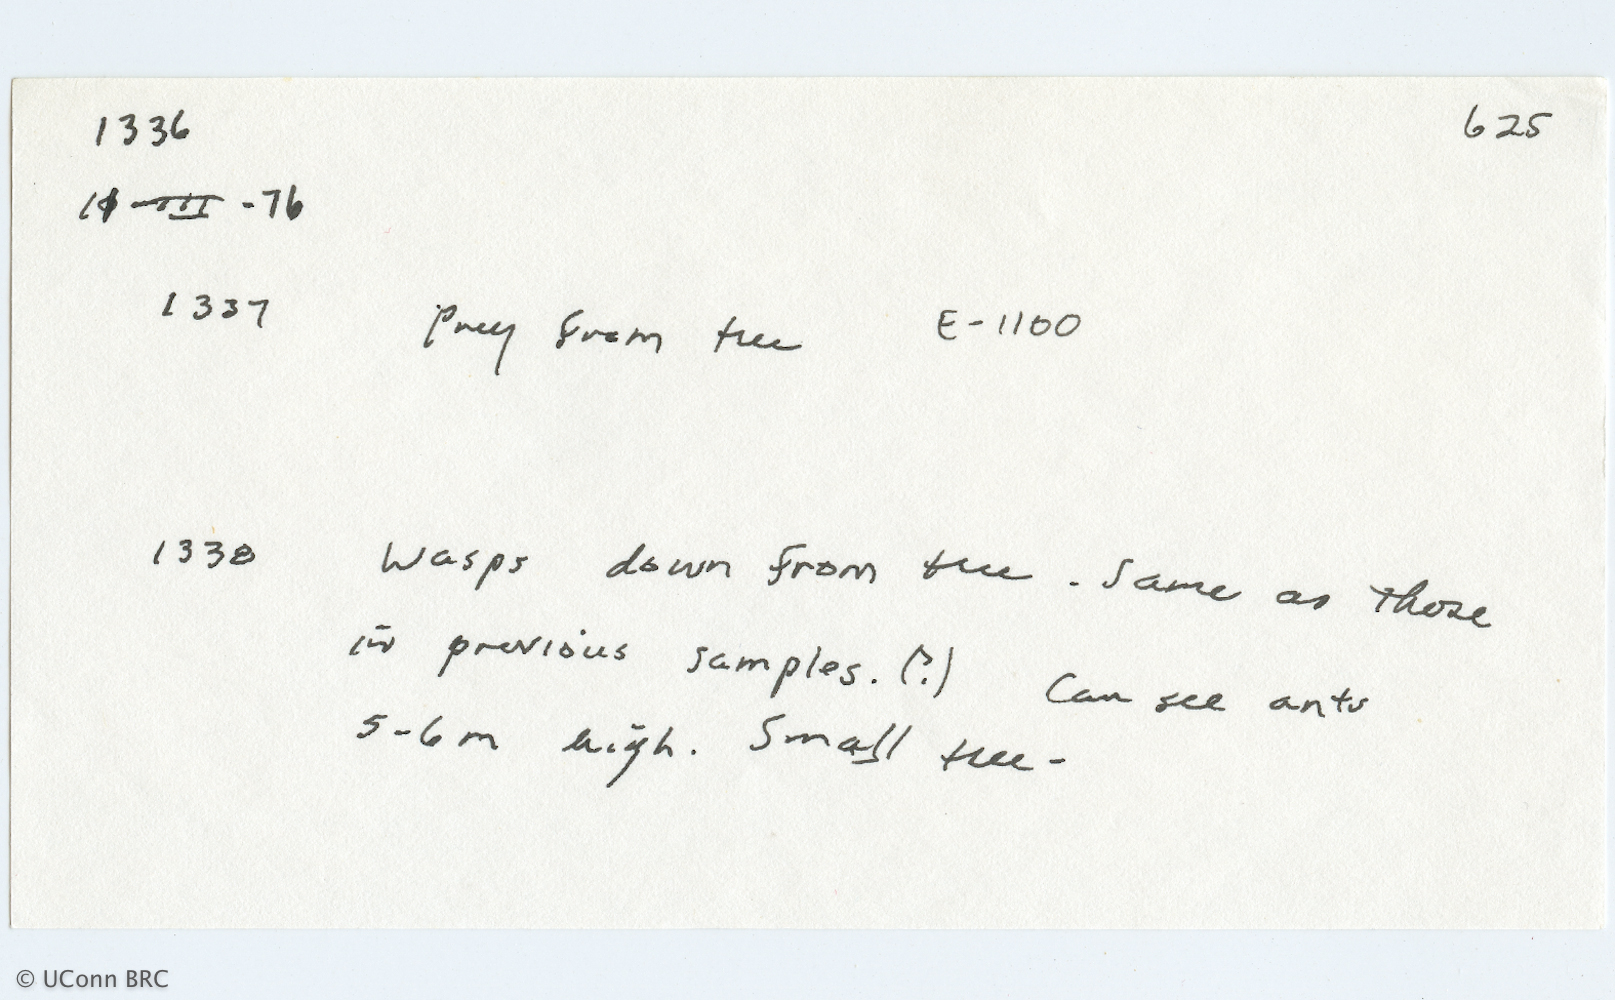 1336 625
-III-76
1337 Prey from tree E-1100
1338 Wasps down from tree. Same as those
in previous samples. (?) Can see ants
5-6m high. Small tree-
© UConn BRC